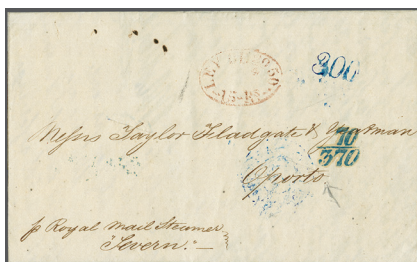 300
15-Rs
Messrs Taylor Fladgate & Yeatman
70
370
Oporto
p Royal Mail Steamer
"Severn."